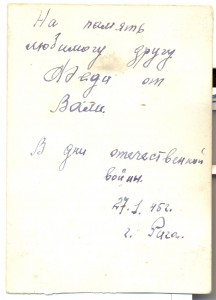 На память
любимогу другу
Нади от
Вали.
В дни отечественной
войны.
27.I.45г.
г. Рига.